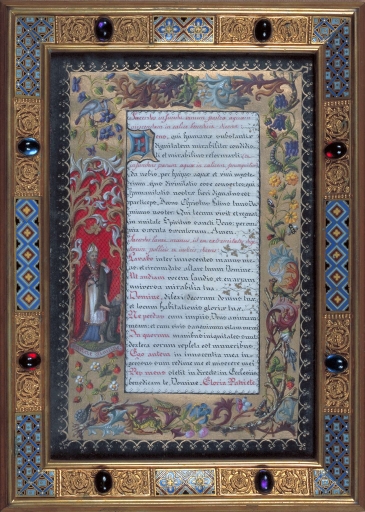 Deus, qui humanæ substantiæ
dignitatem mirabiliter condidis
ti et mirabilius reformasti:
da nobis, per hujus aquæ et vini myste
rium, ejus divinitatis esse consortes, qui
humanitatis nostræ fieri dignatus est
particeps, Jesus Christus Filius tuus Do
minus noster: Qui tecum vivit et regnat
in unitate Spiritus Sancti Deus, per om
nia sæcula sæculorum. Amen.
Lavabo inter innocentes manus me
as, et circumdabo altare tuum Domine.
Ut audiam vocem laudis, et enarrem
universa mirabilia tua.
Domine, dilexi decorem domus tuæ
et locum habitationis gloriæ tuæ.
Ne perdas cum impiis Deus animam
meam, et cum viris sanguinum vitam meam
In quorum manibus iniquitates sunt
dextera eorum repleta est muneribus.
Ego autem in innocentia mea in
gressus sum redime me et miserere mei
Pes meus stetit in directo, in Ecclesiis
benedicam te Domine. Gloria Patri etc.